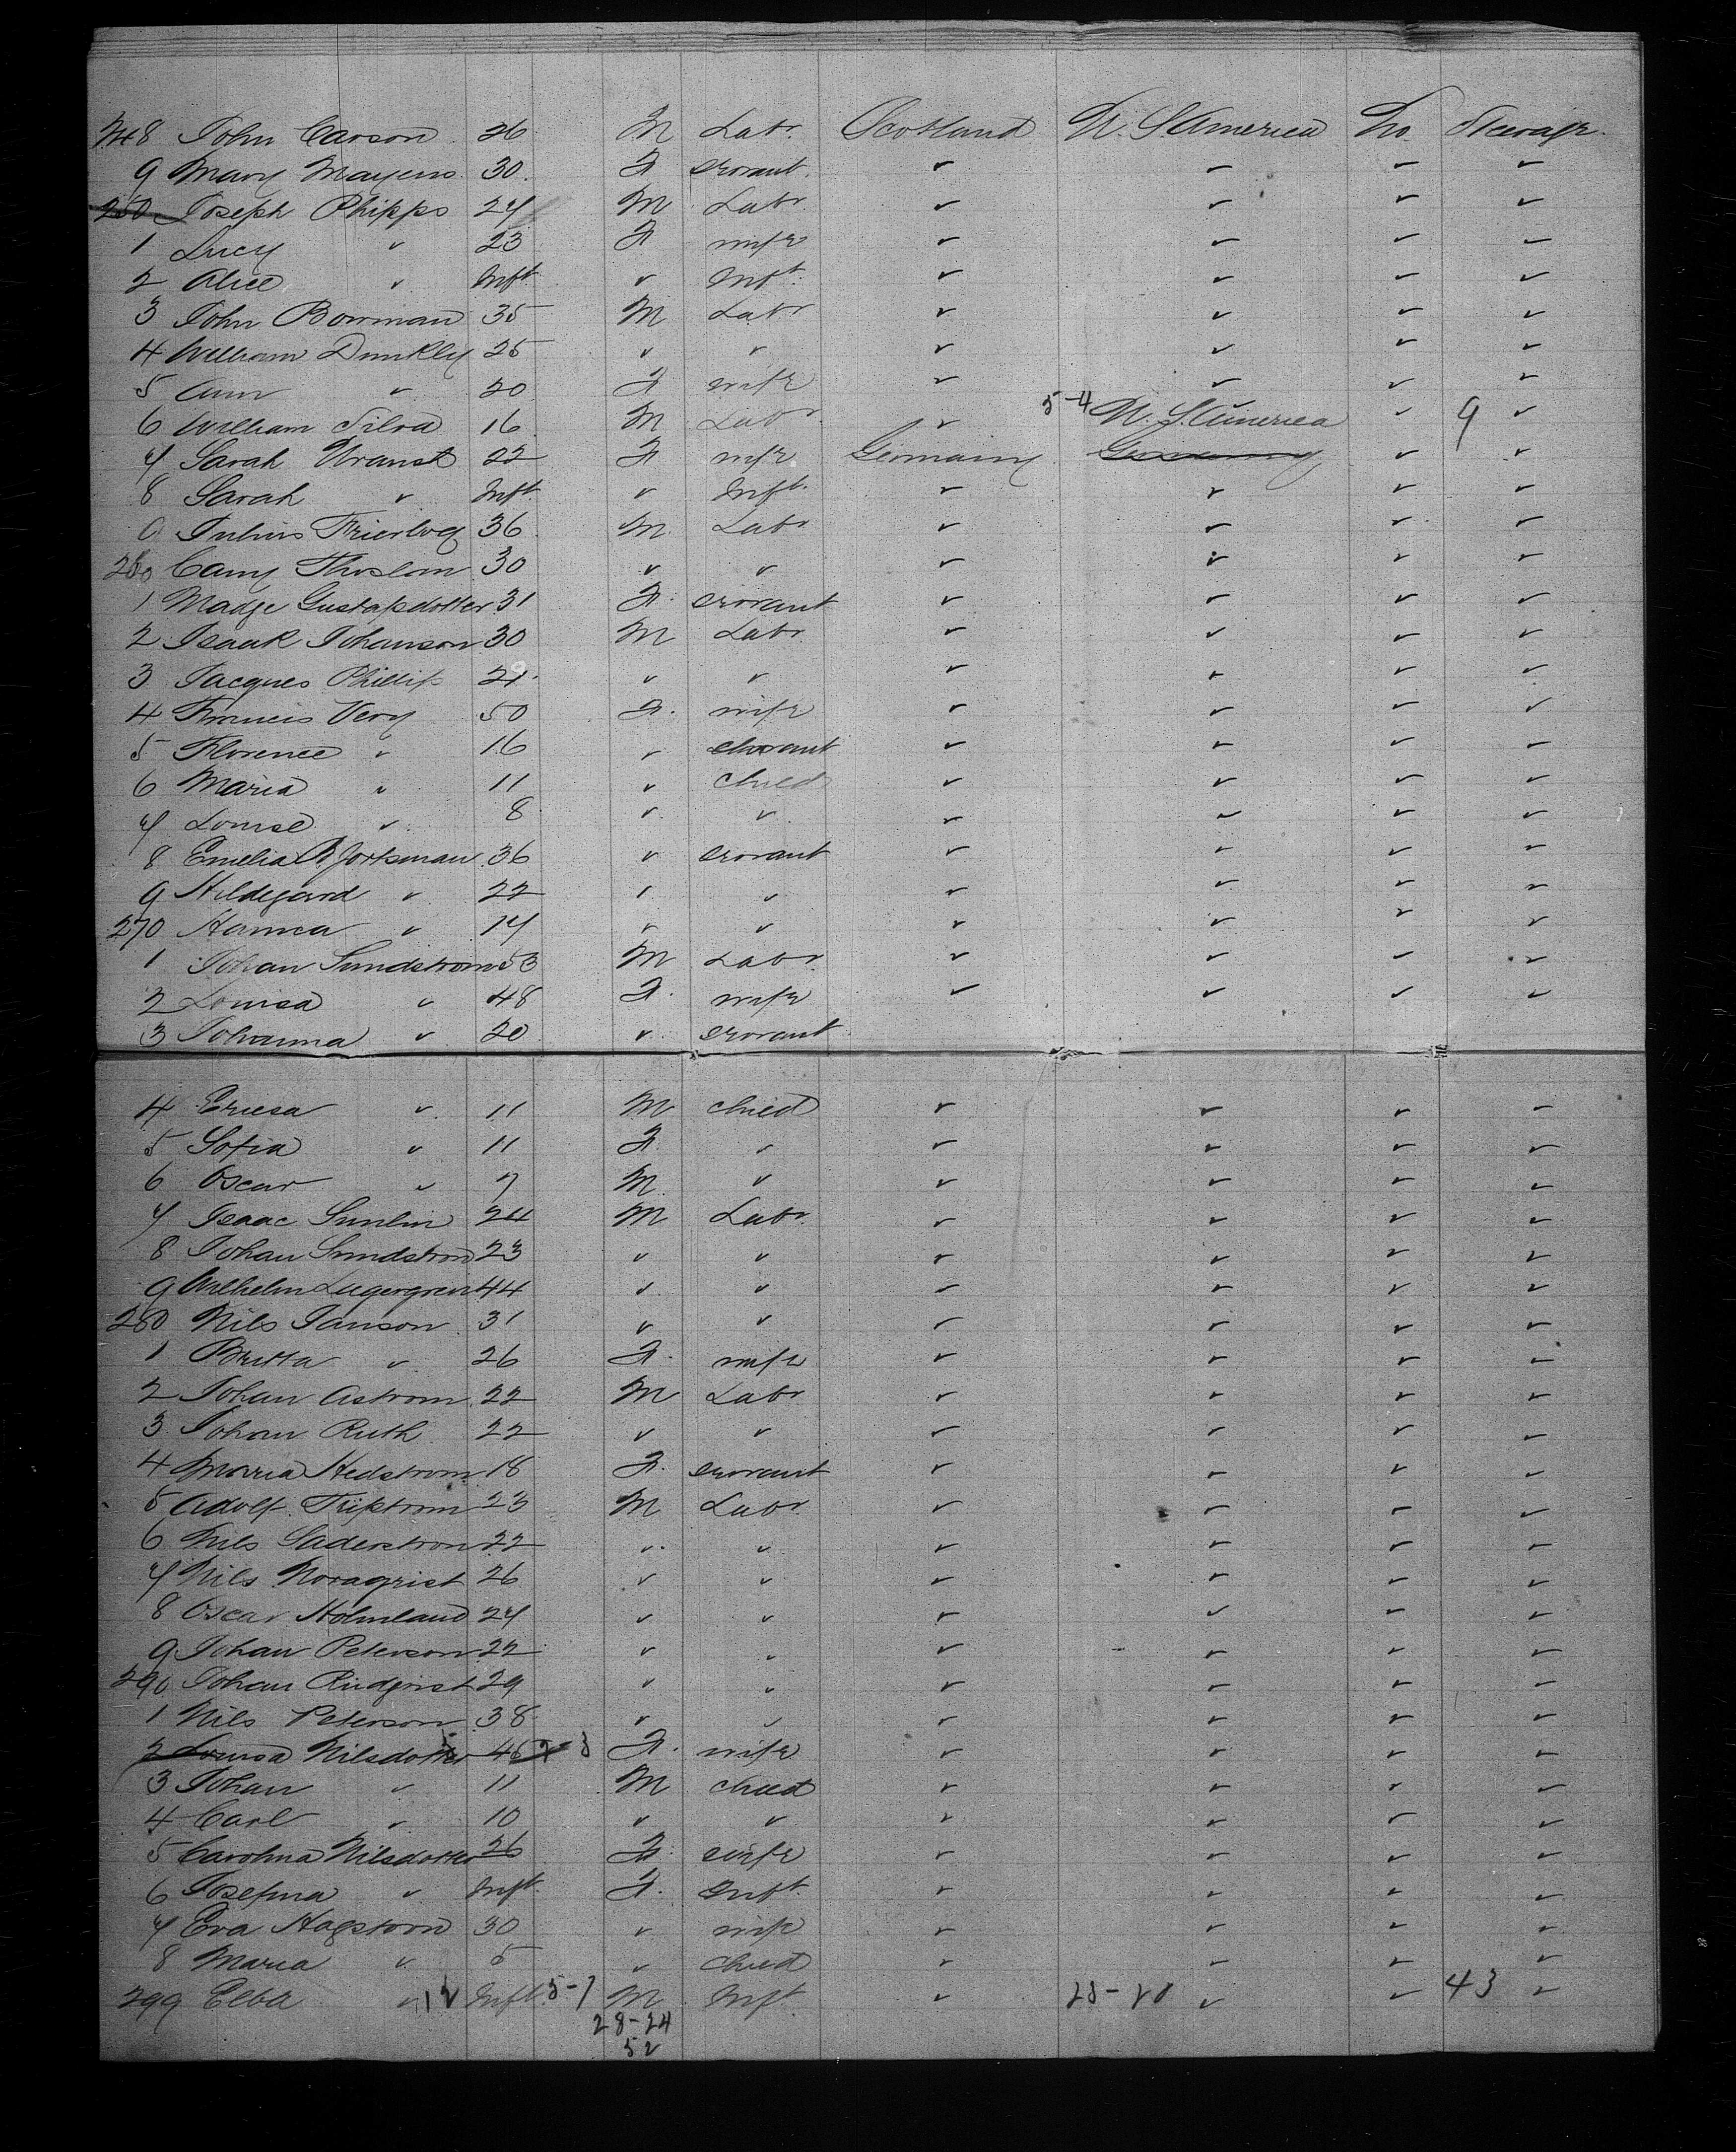 248 John Carson 26 M Labr Scotland U. S America No Steerage
9 Mary Mayers 30 F servant " " " "
250 Joseph Phipps 24 M Labr " " " "
1 Lucy " 23 F wife " " " "
2 Alice " Inft " Inft " " " "
3 John Bowman 35 M Labr " " " "
4 William Dunkley 25 " " " " " "
5 Ann " 20 F wife " " " "
6 William Silva 16 M Labr " 5-4 U. S. America " 9 "
7 Sarah 22 F wife Germany Germany " "
8 Sarah " Inft " Inft " " " "
9 Julius 36 M Labr " " " "
260 30 " " " " " "
1 Madge Gustafsdotter 31 F servant " " " "
2 Isaak Johanson 30 M Labr " " " "
3 Jacques Phillip 21 " " " " " "
4 Francis Very 50 F wife " " " "
5 Florence " 16 " servant " " " "
6 Maria " 11 " child " " " "
7 Louise " 8 " " " " " "
8 Emelia 36 " servant " " " "
9 Hildegard " 22 " " " " " "
270 Hanna " 14 " " " " " "
1 Johan Sundstrom 53 M Labr " " " "
2 Louisa " 48 F wife " " " "
3 Johanna " 20 " servant
4 Ericsa " 11 M child " " " "
5 Sofia " 11 F " " " " "
6 Oscar " 7 M " " " " "
7 Isaac Sunlin 24 M Labr " " " "
8 Johan Sundstrom 23 " " " " " "
9 Wilhelm Lugergren 44 " " " " " "
280 Nils Janson 31 " " " " " "
1 Britta " 26 F wife " " " "
2 Johan Astrom 22 M Labr " " " "
3 Johan Ruth 22 " " " " " "
4 Maria Hedstrom 18 F servant " " " "
5 Adolf 23 M Labr " " " "
6 Nils Saderstrom 22 " " " " " "
7 Nils Noraqrist 26 " " " " " "
8 Oscar Holmland 24 " " " " " "
9 Johan Peterson 22 " " " " " "
290 Johan 29 " " " " " "
1 Nils Peterson 38 " " " " " "
2 Louisa Nilsdotter 46 F wife " " " "
3 Johan " 11 M child " " " "
4 Carl " 10 " " " " " "
5 Carolina Nilsdotter 26 F wife " " " "
6 Josefina " Inft F Inft " " " "
7 Eva Hagstrom 30 " wife " " " "
8 Maria " 5 " child " " " "
299 Ebba " 12 Inft 5-7 M Inft " 28-20 " " 43 "
28-24
52